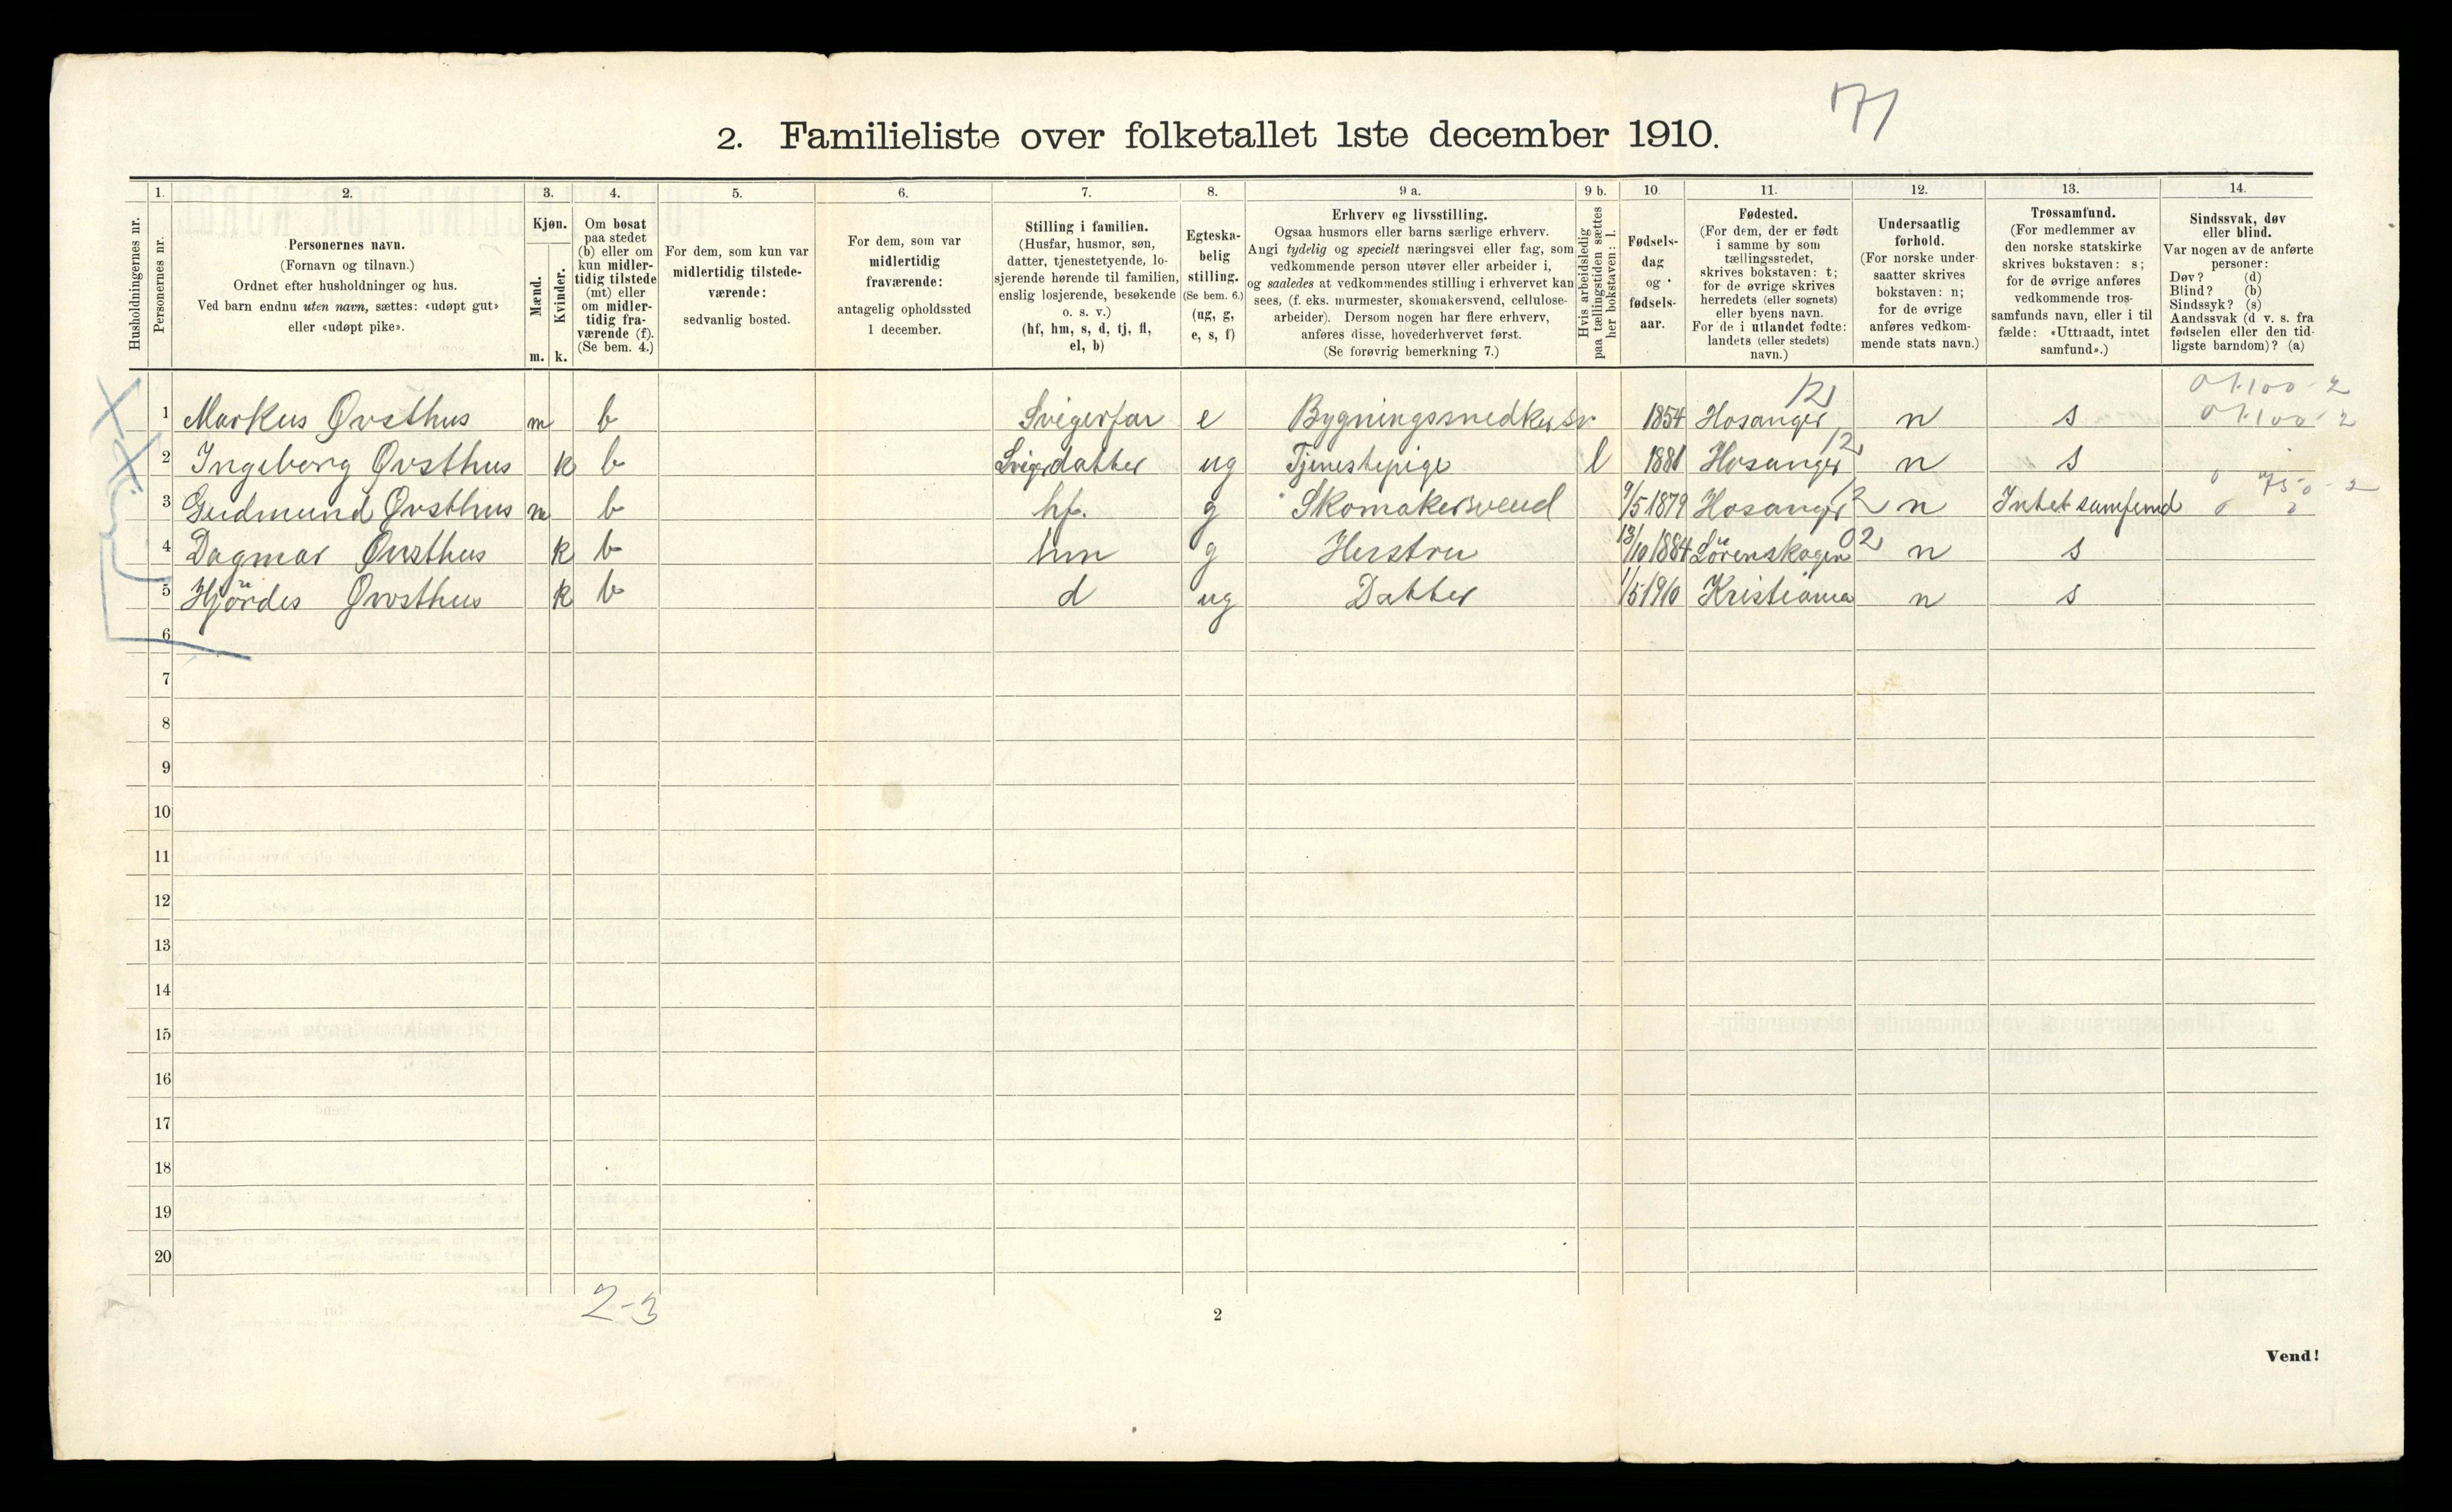 171
2. Familieliste over folketallet 1ste december 1910.
Husholdningernes nr.
1. Personernes nr.
2. Personernes navn.
(Fornavn og tilnavn.)
Ordnet efter husholdninger og hus.
Ved barn endnu uten navn, sættes: «udøpt gut»
eller «udøpt pike».
3. Kjøn.
Mænd. m.
Kvinder. k.
4. Om bosat
paa stedet
(b) eller om
kun midler-
tidig tilstede
(mt) eller
om midler-
tidig fra-
værende (f).
(Se bem. 4.)
5. For dem, som kun var
midlertidig tilstede-
værende:
sedvanlig bosted.
6. For dem, som var
midlertidig
fraværende:
antagelig opholdssted
1 december.
7. Stilling i familien.
(Husfar, husmor, søn,
datter, tjenestetyende, lo-
sjerende hørende til familien,
enslig losjerende, besøkende
o. s. v.)
(hf, hm, s, d, tj, fl,
el, b)
8. Egteska-
belig
stilling.
(Se bem. 6.)
(ug, g,
e, s, f)
9 a. Erhverv og livsstilling.
Ogsaa husmors eller barns særlige erhverv.
Angi tydelig og specielt næringsvei eller fag, som
vedkommende person utøver eller arbeider i,
og saaledes at vedkommendes stilling i erhvervet kan
sees, (f. eks. murmester, skomakersvend, cellulose-
arbeider). Dersom nogen har flere erhverv,
anføres disse, hovederhvervet først.
(Se forøvrig bemerkning 7.)
9 b. Hvis arbeidsledig
paa tællingstiden sættes
her bokstaven: l.
10. Fødsels-
dag
og
fødsels-
aar.
11. Fødested.
(For dem, der er født
i samme by som
tællingsstedet,
skrives bokstaven: t;
for de øvrige skrives
herredets (eller sognets)
eller byens navn.
For de i utlandet fødte:
landets (eller stedets)
navn.)
12. Undersaatlig
forhold.
(For norske under-
saatter skrives
bokstaven: n;
for de øvrige
anføres vedkom-
mende stats navn.)
13. Trossamfund.
(For medlemmer av
den norske statskirke
skrives bokstaven: s;
for de øvrige anføres
vedkommende tros-
samfunds navn, eller i til
fælde: «Uttraadt, intet
samfund».)
14. Sindssvak, døv
eller blind.
Var nogen av de anførte
personer:
Døv? (d)
Blind? (b)
Sindssyk? (s)
Aandssvak (d v. s. fra
fødselen eller den tid-
ligste barndom)? (a)
1 Markus Øvsthus m b Svigerfar e Bygningssnedkersv 1854 Hosanger 12 n s
2 Ingeborg Øvsthus k b Svigerdatter ug Tjenestepige l 1881 Hosanger 12 n s
3 Gudmund Øvsthus m b hf. g Skomakersvend 9/5 1879 Hosanger 12 n Intet samfund
4 Dagmar Øvsthus k b hm g Hustru 13/10 1884 Lörenskogen 02 n s
5 Hjördis Øvsthus k b d ug Datter 1/5 1910 Kristiania n s
6
7
8
9
10
11
12
13
14
15
16
17
18
19
20
2-3
2
Vend!